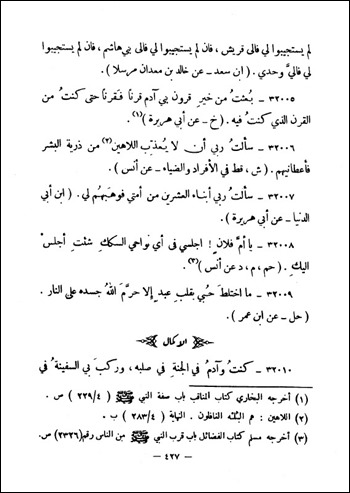 لم يستجيبوا لي فالى قريش ، فان لم يستجيبوا لي فالى بني هاشم ، فان لم يستجيبوا
لي فاليَّ وحدي . ( ابن سعد ـ عن خالد بن معدان مرسلا ) .
٣٢٠٠٥ ـ بُعثتُ من خيرِ قرون بني آدم قرناً فقرناً حتى كنتُ من
القرن الذي كنتُ فيه . ( خ ـ عن أبي هريرة )(١) .
٣٢٠٠٦ ـ سألتُ ربي أن لا يُعذبَ اللاهين(٢) من ذرية البشر
فأعطانيهم . ( ش ، قط في الأفراد والضياء ـ عن أنس ) .
٣٢٠٠٧ ـ سألتُ ربي أبناء العشرين من أمتي فوهبهُم لي . ( ابن أبي
الدنيا ـ عن أبي هريرة ) .
٣٢٠٠٨ ـ يا أمَّ فلانٍ ! اجلسي في أي نواحي السككِ شئتِ أجلسْ
اليكِ . ( حم ، م ، د عن أنس )(٣) .
٣٢٠٠٩ ـ ما اختلطَ حُبي بقلبِ عبدٍ إلا حرَّمَ اللهُ جسده على النار .
( حل ـ عن ابن عمر ) .
الاكمال
٣٢٠١٠ ـ كنتُ وآدمُ في الجنةِ في صلبه ، وركبَ بي السفينةُ في
(١) أخرجه البخاري كتاب المناقب باب صفة النبي ﷺ ( ٢٢٩/٤ ) ص .
(٢) اللاهين : م البُلْه الغافلون . النهاية ( ٢٨٣/٤ ) ب .
(٣) أخرجه مسلم كتاب الفضائل باب قرب النبي ﷺ من الناس رقم (٢٣٢٦) ص .
ـ ٤٢٧ ـ